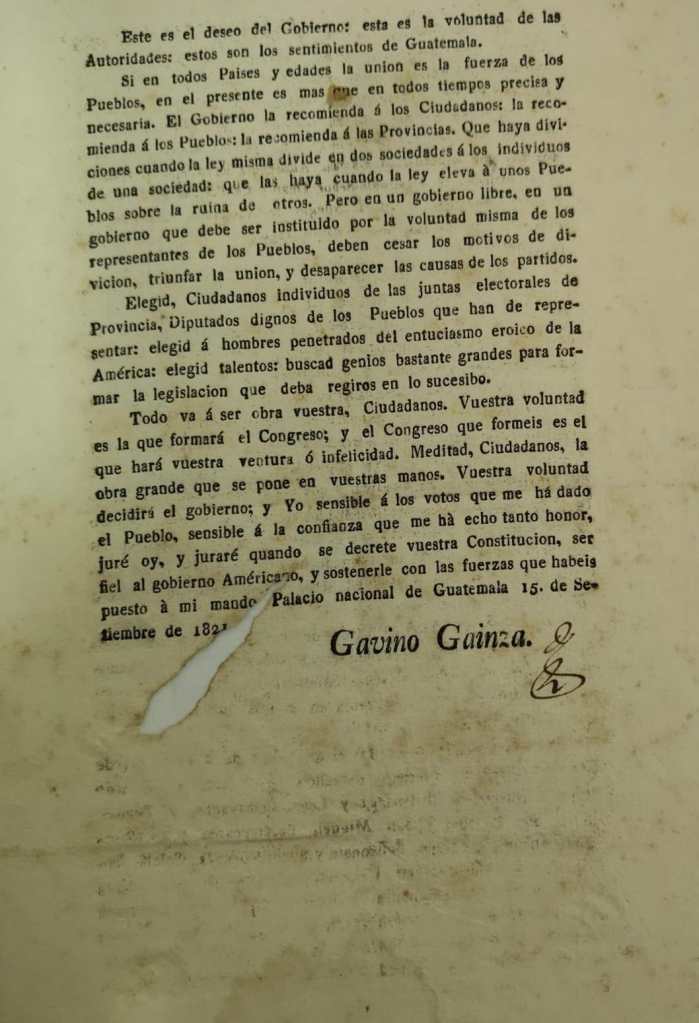 Este es el deseo del Gobierno: esta es la voluntad de las
Autoridades: estos son los sentimientos de Guatemala.
Si en todos Paises y edades la union es la fuerza de los
Pueblos, en el presente es mas que en todos tiempos precisa y
necesaria. El Gobierno la recomienda á los Ciudadanos: la reco-
mienda á los Pueblos: la recomienda á las Provincias. Que haya divi-
ciones cuando la ley misma divide en dos sociedades á los individuos
de una sociedad: que las haya cuando la ley eleva à unos Pue-
blos sobre la ruina de otros. Pero en un gobierno libre, en un
gobierno que debe ser instituido por la voluntad misma de los
representantes de los Pueblos, deben cesar los motivos de di-
vicion, triunfar la union, y desaparecer las causas de los partidos.
Elegid, Ciudadanos individuos de las juntas electorales de
Provincia, Diputados dignos de los Pueblos que han de repre-
sentar: elegid á hombres penetrados del entuciasmo eroico de la
América: elegid talentos: buscad genios bastante grandes para for-
mar la legislacion que deba regiros en lo sucesibo.
Todo va á ser obra vuestra, Ciudadanos. Vuestra voluntad
es la que formará el Congreso; y el Congreso que formeis es el
que hará vuestra ventura ó infelicidad. Meditad, Ciudadanos, la
obra grande que se pone en vuestras manos. Vuestra voluntad
decidirá el gobierno; y Yo sensible á los votos que me há dado
el Pueblo, sensible á la confianza que me hà echo tanto honor,
juré oy, y juraré quando se decrete vuestra Constitucion, ser
fiel al gobierno Américano, y sostenerle con las fuerzas que habeis
puesto à mi mando Palacio nacional de Guatemala 15. de Se-
tiembre de 1821
Gavino Gainza.